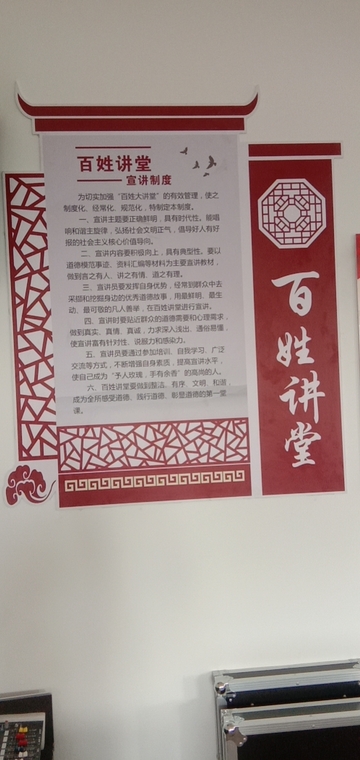 百姓讲堂
宣讲制度
为切实加强“百姓大讲堂”的有效管理，使之
制度化、经常化、规范化，特制定本制度。
一、宣讲主题要正确鲜明，具有时代性。能唱
响和谐主旋律，弘扬社会文明正气，倡导好人有好
报的社会主义核心价值导向。
二、宣讲内容要积极向上，具有典型性。要以
道德模范事迹、资料汇编等材料为主要宣讲教材，
做到言之有人、讲之有情、道之有理。
三、宣讲员要发挥自身优势，经常到群众中去
采撷和挖掘身边的优秀道德故事，用最鲜明、最生
动、最可敬的凡人善举，在百姓讲堂进行宣讲。
四、宣讲时要贴近群众的道德需要和心理需求，
做到真实、真情、真诚，力求深入浅出、通俗易懂，
使宣讲富有针对性、说服力和感染力。
五、宣讲员要通过参加培训、自我学习、广泛
交流等方式，不断增强自身素质，提高宣讲水平，
使自己成为“予人玫瑰，手有余香”的高尚的人。
六、百姓讲堂要做到整洁、有序、文明、和谐，
成为全所感受道德、践行道德、彰显道德的第一堂
课。
百姓讲堂